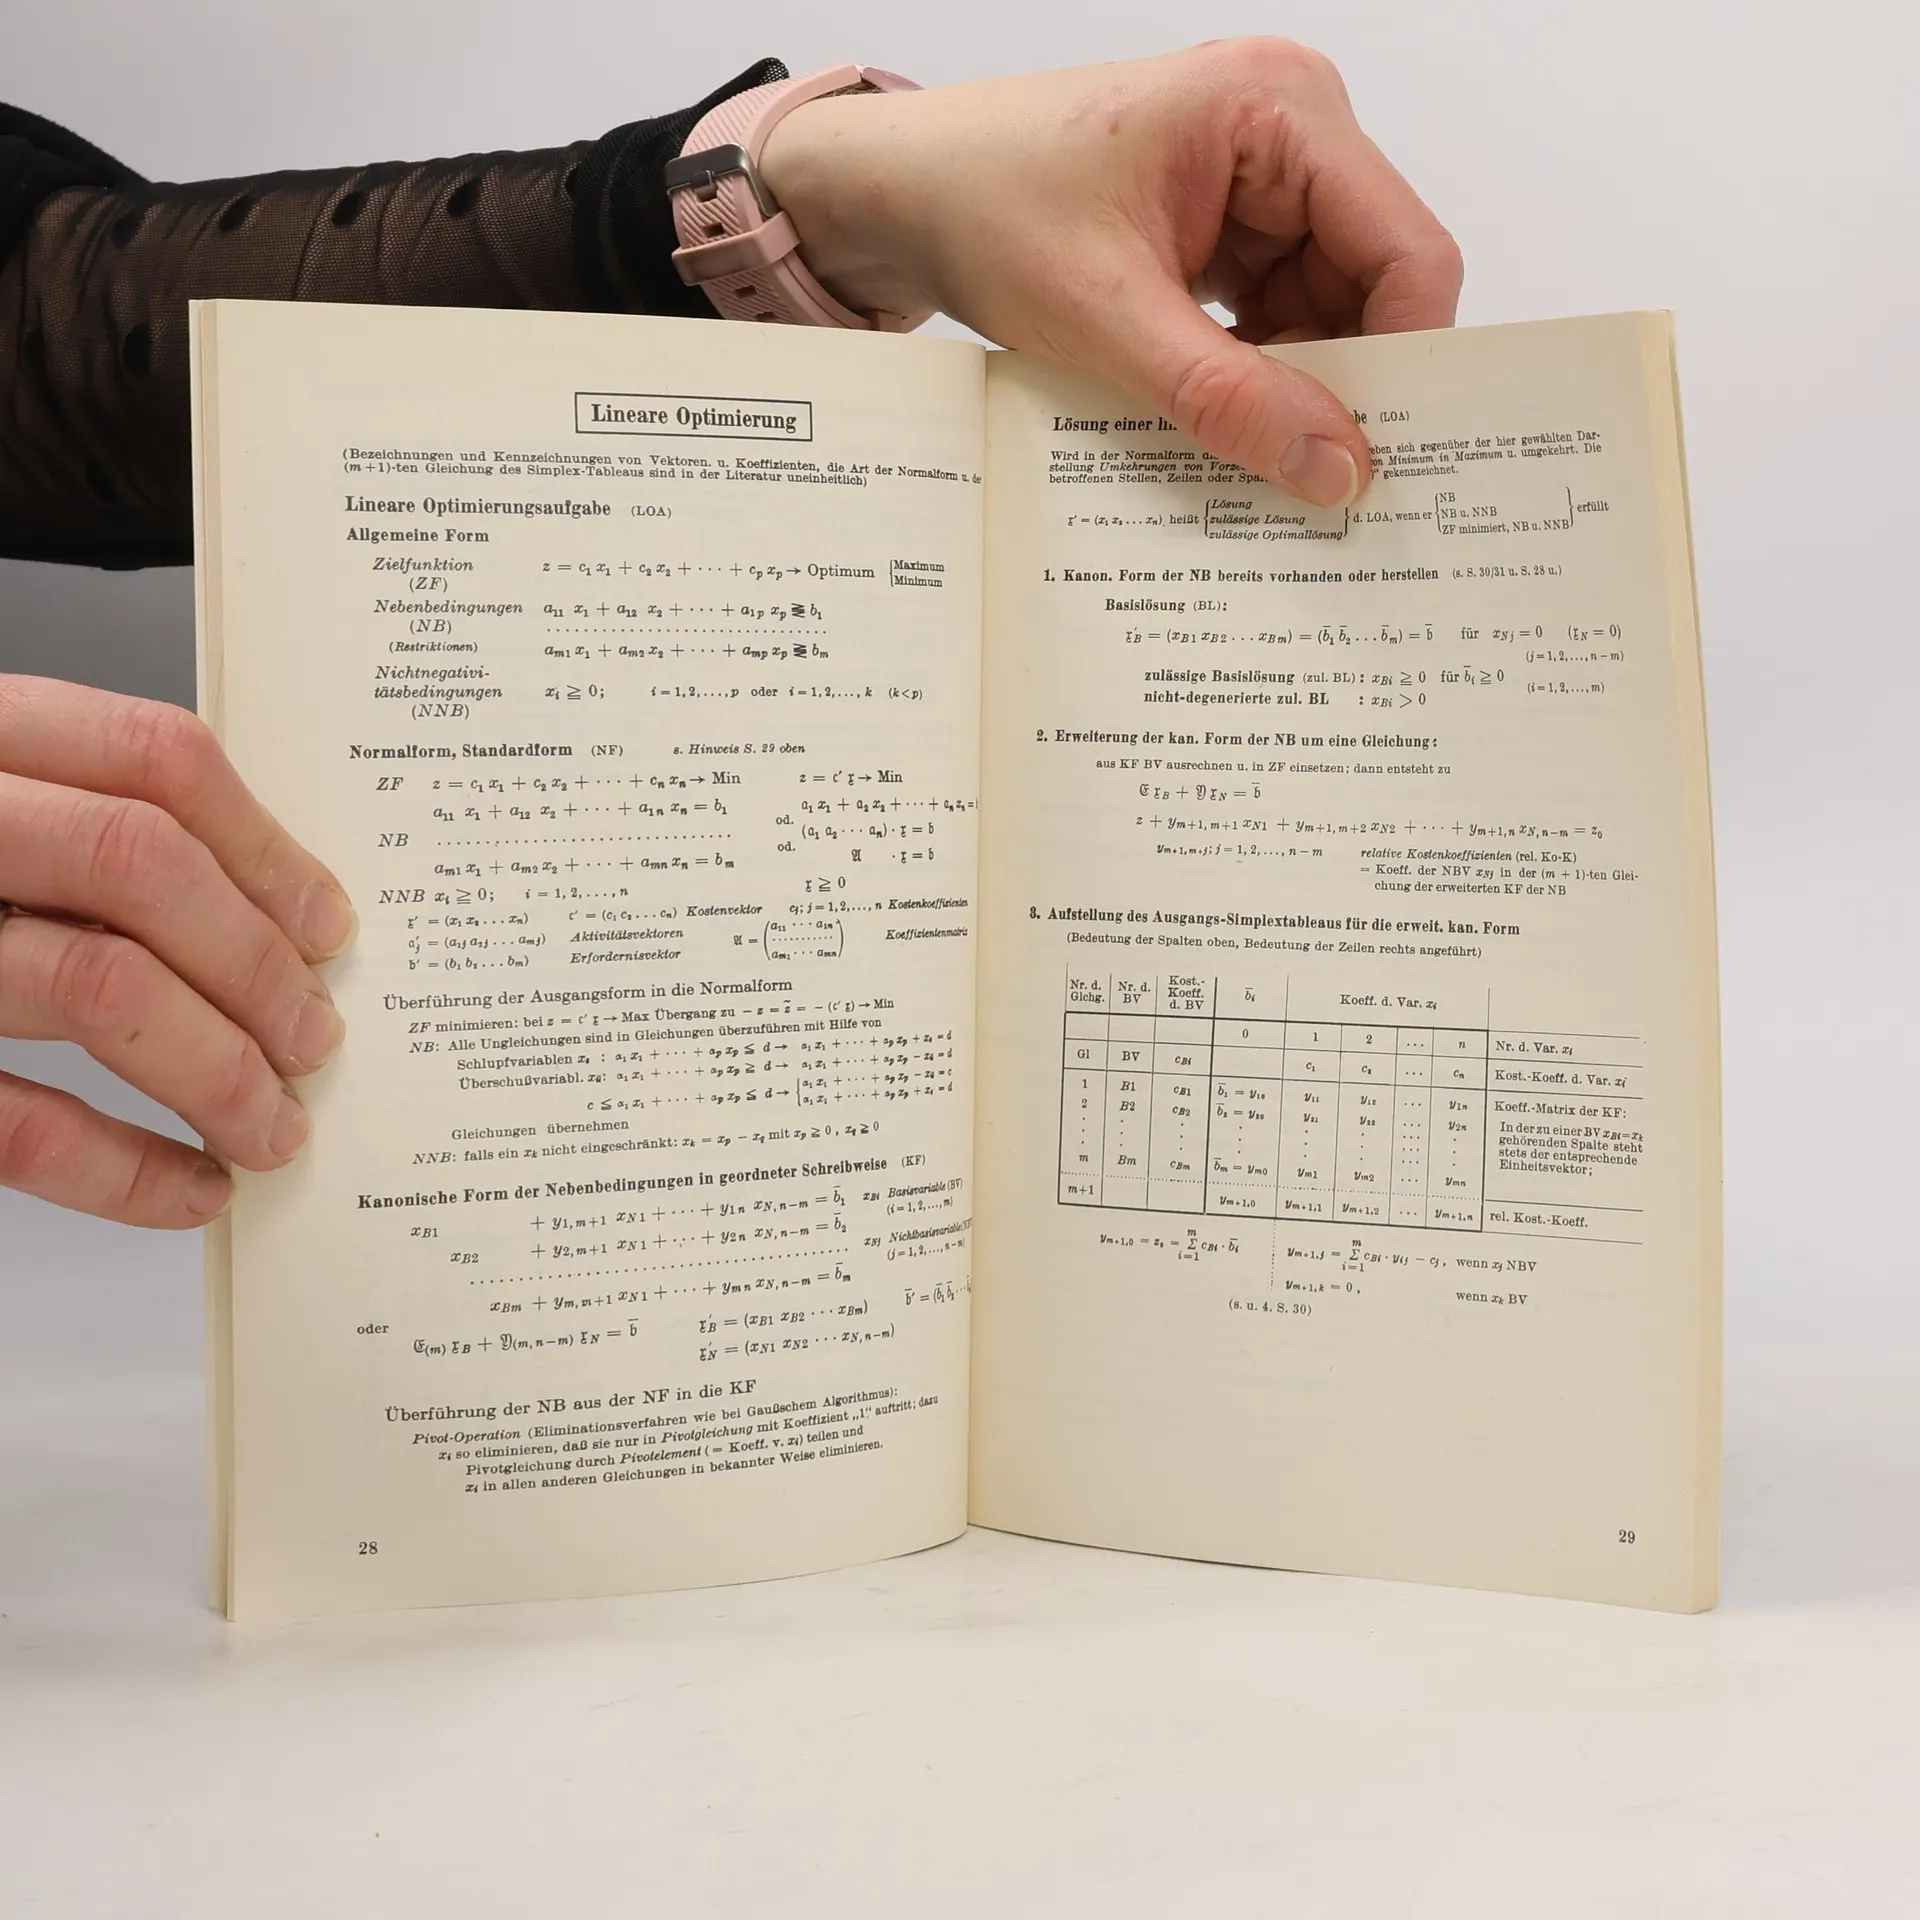 Lineare Optimierung
(Bezeichnungen und Kennzeichnungen von Vektoren. u. Koeffizienten, die Art der Normalform u. der
(m+1)-ten Gleichung des Simplex-Tableaus sind in der Literatur uneinheitlich)
Lineare Optimierungsaufgabe (LOA)
Allgemeine Form
Zielfunktion z = c₁ x₁ + c₂ x₂ + ··· + cₚ xₚ → Optimum { Maximum
(ZF) Minimum
Nebenbedingungen a₁₁ x₁ + a₁₂ x₂ + ··· + a₁ₚ xₚ ⪋ b₁
(NB) ..............................
(Restriktionen) aₘ₁ x₁ + aₘ₂ x₂ + ··· + aₘₚ xₚ ⪋ bₘ
Nichtnegativi-
tätsbedingungen xᵢ ≧ 0; i = 1, 2, ..., p oder i = 1, 2, ..., k (k<p)
(NNB)
Normalform, Standardform (NF) s. Hinweis S. 29 oben
ZF z = c₁ x₁ + c₂ x₂ + ··· + cₙ xₙ → Min z = 𝔠′ 𝔵 → Min
a₁₁ x₁ + a₁₂ x₂ + ··· + a₁ₙ xₙ = b₁ 𝔞₁ x₁ + 𝔞₂ x₂ + ··· + 𝔞ₙ xₙ =
od. (𝔞₁ 𝔞₂ ··· 𝔞ₙ) · 𝔵 = 𝔟
NB ..............................
od. 𝔄 · 𝔵 = 𝔟
aₘ₁ x₁ + aₘ₂ x₂ + ··· + aₘₙ xₙ = bₘ
NNB xᵢ ≧ 0; i = 1, 2, ..., n 𝔵 ≧ 0
𝔵′ = (x₁ x₂ ... xₙ) 𝔠′ = (c₁ c₂ ... cₙ) Kostenvektor cⱼ; j = 1, 2, ..., n Kostenkoeffizienten
𝔞ⱼ′ = (a₁ⱼ a₂ⱼ ... aₘⱼ) Aktivitätsvektoren 𝔄 = (a₁₁ ··· a₁ₙ ........... aₘ₁ ··· aₘₙ) Koeffizientenmatrix
𝔟′ = (b₁ b₂ ... bₘ) Erfordernisvektor
Überführung der Ausgangsform in die Normalform
ZF minimieren: bei z = 𝔠′ 𝔵 → Max Übergang zu − z = z̃ = − (𝔠′ 𝔵) → Min
NB: Alle Ungleichungen sind in Gleichungen überzuführen mit Hilfe von
Schlupfvariablen xₛ : a₁ x₁ + ··· + aₚ xₚ ≦ d → a₁ x₁ + ··· + aₚ xₚ + xₛ = d
Überschußvariabl. xᵤ̈: a₁ x₁ + ··· + aₚ xₚ ≧ d → a₁ x₁ + ··· + aₚ xₚ − xᵤ̈ = d
c ≦ a₁ x₁ + ··· + aₚ xₚ ≦ d → { a₁ x₁ + ··· + aₚ xₚ − xᵤ̈ = c
a₁ x₁ + ··· + aₚ xₚ + xₛ = d
Gleichungen übernehmen
NNB: falls ein xₖ nicht eingeschränkt: xₖ = xₚ − x_q mit xₚ ≧ 0, x_q ≧ 0
Kanonische Form der Nebenbedingungen in geordneter Schreibweise (KF)
x_B1 + y₁,ₘ₊₁ x_N1 + ··· + y₁ₙ x_N,n−m = b̄₁ x_Bi Basisvariable (BV)
(i = 1, 2, ..., m)
x_B2 + y₂,ₘ₊₁ x_N1 + ··· + y₂ₙ x_N,n−m = b̄₂
.............................. x_Nj Nichtbasisvariable
(j = 1, 2, ..., n−m)
x_Bm + yₘ,ₘ₊₁ x_N1 + ··· + yₘₙ x_N,n−m = b̄ₘ
oder
𝔈₍ₘ₎ 𝔵_B + 𝔜₍m, n−m₎ 𝔵_N = 𝔟̄ 𝔵′_B = (x_B1 x_B2 ··· x_Bm) 𝔟̄′ = (b̄₁ b̄₂ ...
𝔵′_N = (x_N1 x_N2 ··· x_N,n−m)
Überführung der NB aus der NF in die KF
Pivot-Operation (Eliminationsverfahren wie bei Gaußschem Algorithmus):
xᵢ so eliminieren, daß sie nur in Pivotgleichung mit Koeffizient „1“ auftritt; dazu
Pivotgleichung durch Pivotelement (= Koeff. v. xᵢ) teilen und
xᵢ in allen anderen Gleichungen in bekannter Weise eliminieren.
28
Lösung einer (LOA)
Wird in der Normalform eben sich gegenüber der hier gewählten Dar-
stellung Umkehrungen von von Minimum in Maximum u. umgekehrt. Die
betroffenen Stellen, Zeilen oder gekennzeichnet.
𝔵′ = (x₁ x₂ ... xₙ) heißt { Lösung zulässige Lösung zulässige Optimallösung } d. LOA, wenn er { NB NB u. NNB ZF minimiert, NB u. NNB } erfüllt
1. Kanon. Form der NB bereits vorhanden oder herstellen (s. S. 30/31 u. S. 28 u.)
Basislösung (BL):
𝔵′_B = (x_B1 x_B2 ... x_Bm) = (b̄₁ b̄₂ ... b̄ₘ) = 𝔟̄ für x_Nj = 0 (𝔵_N = 0)
(j = 1, 2, ..., n − m)
zulässige Basislösung (zul. BL): x_Bi ≧ 0 für b̄ᵢ ≧ 0
(i = 1, 2, ..., m)
nicht-degenerierte zul. BL : x_Bi > 0
2. Erweiterung der kan. Form der NB um eine Gleichung:
aus KF BV ausrechnen u. in ZF einsetzen; dann entsteht zu
𝔈 𝔵_B + 𝔜 𝔵_N = 𝔟̄
z + yₘ₊₁,ₘ₊₁ x_N1 + yₘ₊₁,ₘ₊₂ x_N2 + ··· + yₘ₊₁,ₙ x_N,n−m = z₀
yₘ₊₁,ₘ₊ⱼ; j = 1, 2, ..., n − m relative Kostenkoeffizienten (rel. Ko-K)
= Koeff. der NBV x_Nj in der (m + 1)-ten Glei-
chung der erweiterten KF der NB
3. Aufstellung des Ausgangs-Simplextableaus für die erweit. kan. Form
(Bedeutung der Spalten oben, Bedeutung der Zeilen rechts angeführt)
Nr. d. Glchg. Nr. d. BV Kost.-Koeff. d. BV b̄ᵢ Koeff. d. Var. xᵢ
0 1 2 ... n Nr. d. Var. xᵢ
Gl BV c_Bi c₁ c₂ ... cₙ Kost.-Koeff. d. Var. xᵢ
1 B1 c_B1 b̄₁ = y₁₀ y₁₁ y₁₂ ... y₁ₙ Koeff.-Matrix der KF:
2 B2 c_B2 b̄₂ = y₂₀ y₂₁ y₂₂ ... y₂ₙ In der zu einer BV x_Bi = xₖ
gehörenden Spalte steht
stets der entsprechende
Einheitsvektor;
m Bm c_Bm b̄ₘ = yₘ₀ yₘ₁ yₘ₂ ... yₘₙ
m+1 yₘ₊₁,₀ yₘ₊₁,₁ yₘ₊₁,₂ ... yₘ₊₁,ₙ rel. Kost.-Koeff.
yₘ₊₁,₀ = z₀ = Σ(i=1 bis m) c_Bi · b̄ᵢ yₘ₊₁,ⱼ = Σ(i=1 bis m) c_Bi · yᵢⱼ − cⱼ, wenn xⱼ NBV
yₘ₊₁,ₖ = 0, wenn xₖ BV
(s. u. 4. S. 30)
29